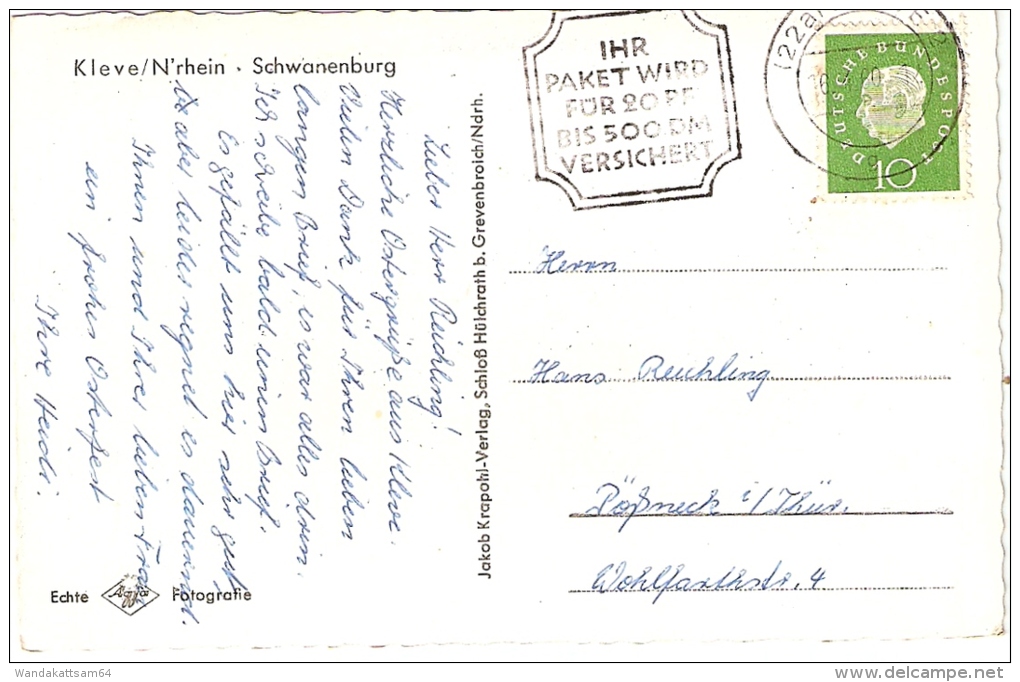 Kleve/N'rhein · Schwanenburg
Lieber Herr Reichling!
Herzliche Ostergrüße aus Kleve.
Vielen Dank für Ihren lieben
langen Brief, es war alles drin.
Ich schreibe bald einen Brief.
Es gefällt uns hier sehr gut,
aber leider regnet es dauernd.
Ihnen und Ihrer lieben Frau
ein frohes Osterfest
Ihre Heidi.
Echte Agfa Fotografie
Jakob Krapohl-Verlag, Schloß Hülchrath b. Grevenbroich/Ndrh.
IHR
PAKET WIRD
FÜR 20 PF
BIS 500 DM
VERSICHERT
(22a)
DEUTSCHE BUNDESPOST
10
Herrn
Hans Reichling
Pößneck i/Thür.
Wohlfarthstr. 4
Wandakattsam64
www.delcampe.net